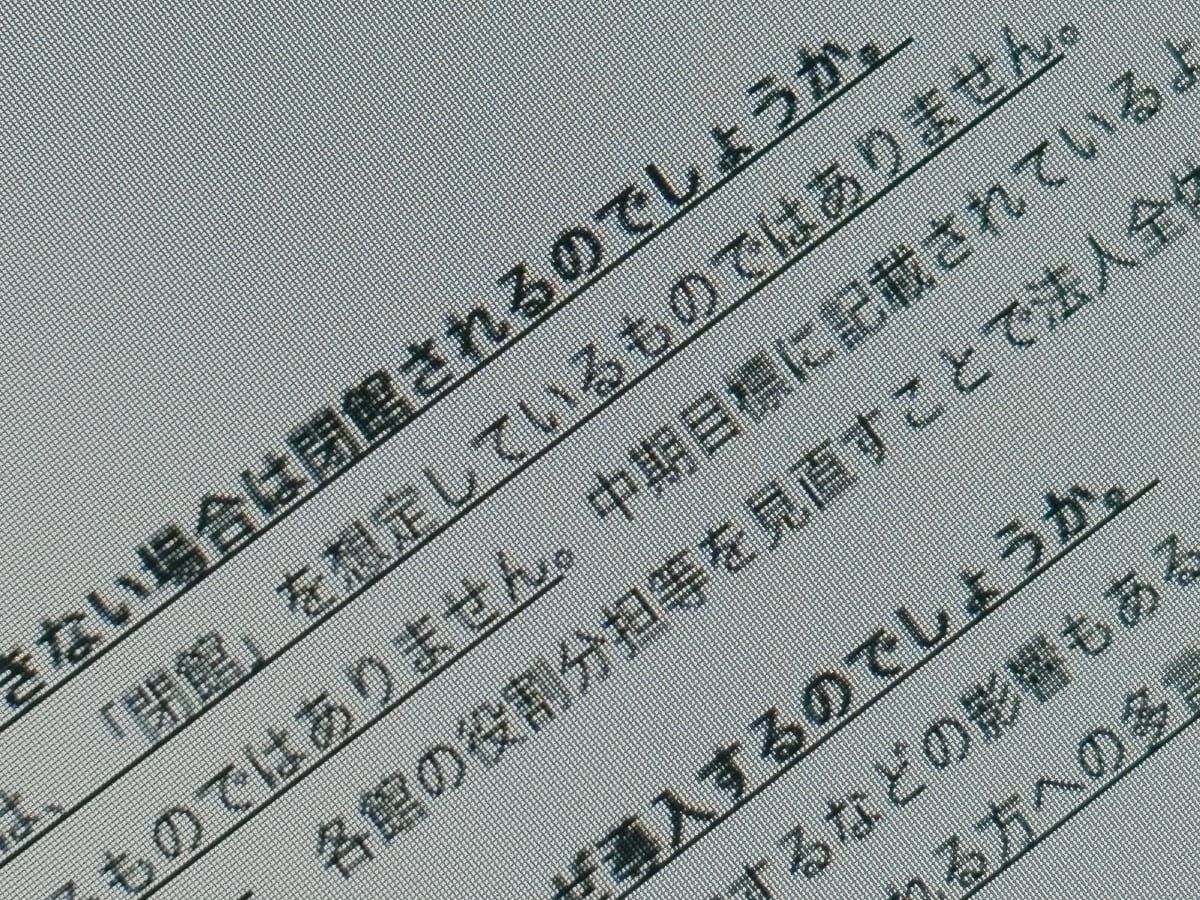 きない場合は閉館されるのでしょうか。
は、「閉館」を想定しているものではありません。
るものではありません。中期目標に記載されているよ
各館の役割分担等を見直すことで法人全体
ぜ導入するのでしょうか。
するなどの影響もある
れる方への多言